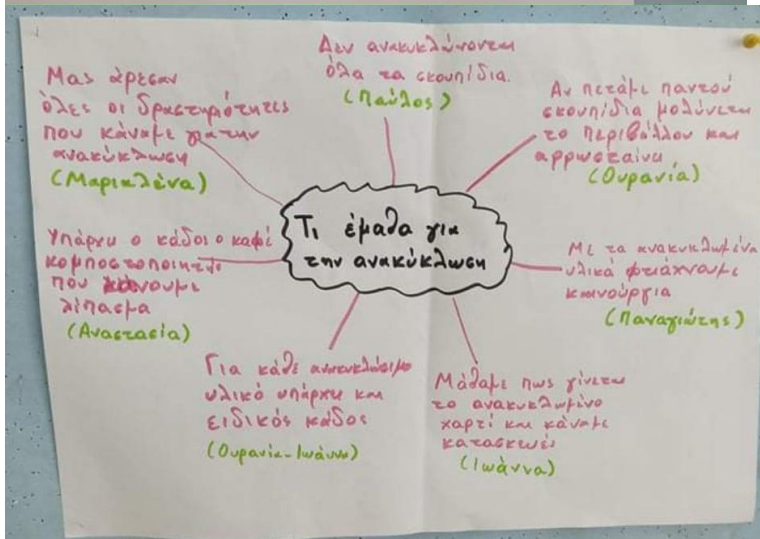 Τι έμαθα για
την ανακύκλωση
Δεν ανακυκλώνονται
όλα τα σκουπίδια.
(Παύλος)
Αν πετάμε παντού
σκουπίδια μολύνεται
το περιβάλλον και
αρρωσταίνει
(Ουρανία)
Με τα ανακυκλωμένα
υλικά φτιάχνουμε
καινούργια
(Παναγιώτης)
Μάθαμε πως γίνεται
το ανακυκλωμένο
χαρτί και κάναμε
κατασκευές
(Ιωάννα)
Για κάθε ανακυκλώσιμο
υλικό υπάρχει και
ειδικός κάδος
(Ουρανία-Ιωάννα)
Υπάρχει ο κάδος ο καφέ
κομποστοποιητής
που κάνουμε
λίπασμα
(Αναστασία)
Μας άρεσαν
όλες οι δραστηριότητες
που κάναμε για την
ανακύκλωση
(Μαριαλένα)